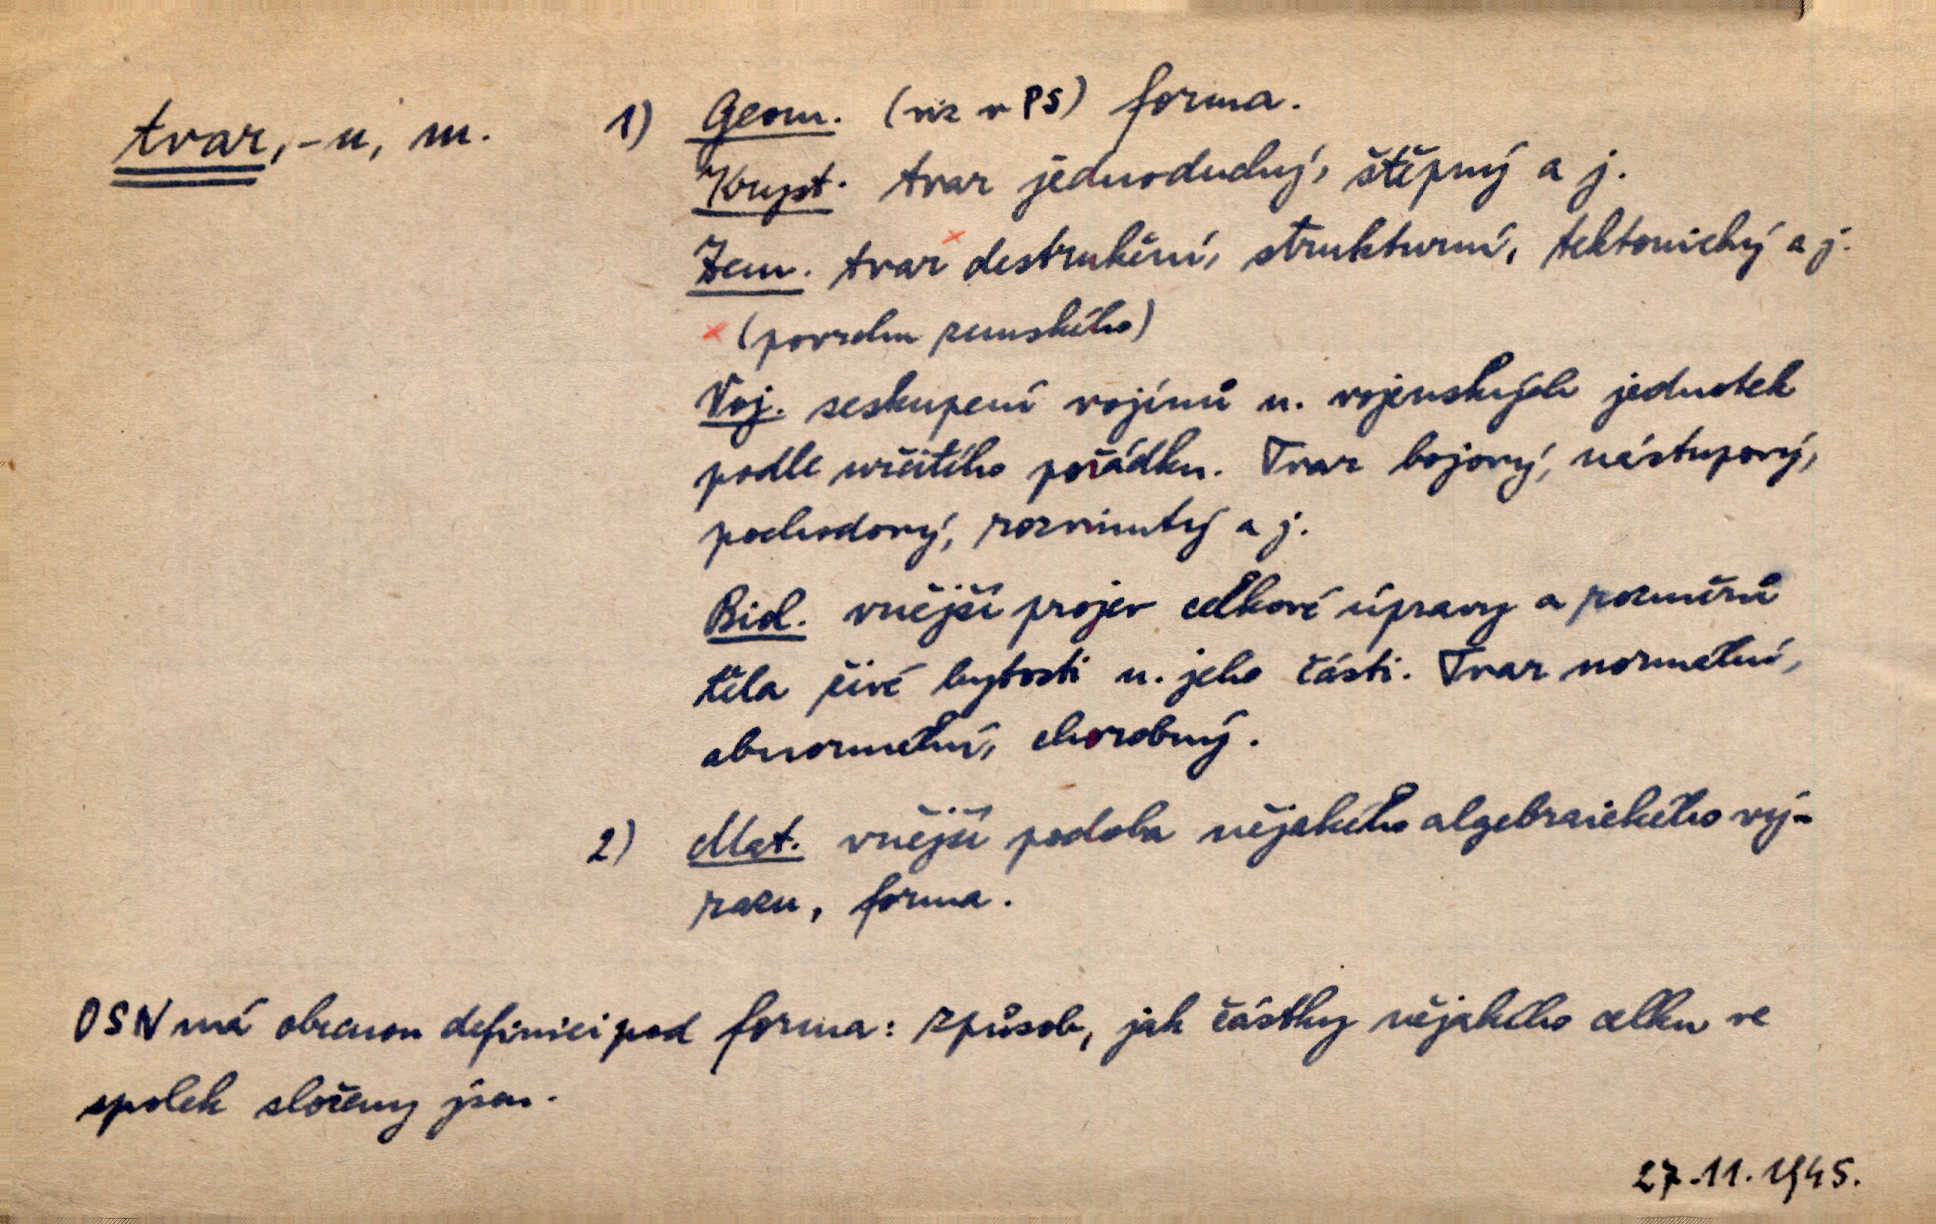 tvar, -u, m. 1) Geom. (viz v PS) forma.
Kryst. tvar jednoduchý, štěpný a j.
Zem. tvar × destrukční, strukturní, tektonický a j.
× (povrchu zemského)
Voj. seskupení vojínů n. vojenských jednotek
podle určitého pořádku. Tvar bojový, nástupový,
pochodový, rozvinutý a j.
Biol. vnější projev celkové úpravy a rozměrů
těla živé bytosti n. jeho části. Tvar normální,
abnormální, chorobný.
2) Mat. vnější podoba nějakého algebraického vý-
razu, forma.
OSN má obecnou definici pod forma: způsob, jak částky nějakého celku ve
spolek složeny jsou.
27.11.1945.